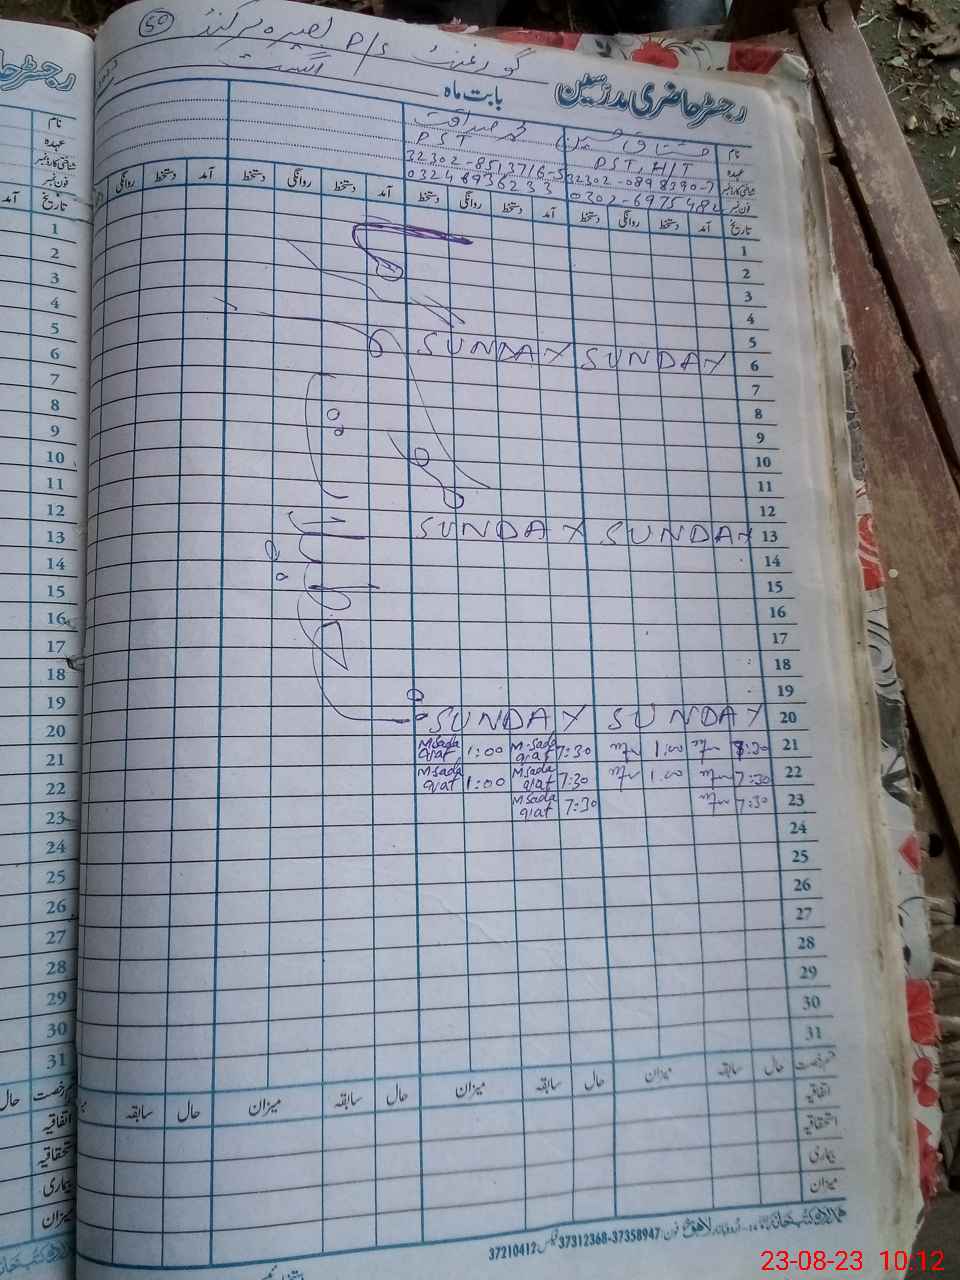 50
گورنمنٹ P/S بصیرہ سرکنڈ
رجسٹر حاضری مدرسین
بابت ماہ اگست
نام محمد صداقت
عہدہ PST, H/T PST
شناختی کارڈ نمبر 32302-0898390-7 32302-8513716-5
فون نمبر 0302-6975482 0324 8936233
تاریخ آمد دستخط روانگی دستخط آمد دستخط روانگی دستخط آمد دستخط روانگی دستخط آمد دستخط روانگی
1
2
3
4
5
SUNDAY SUNDAY 6
7
8
9
10
11
12
SUNDAY SUNDAY 13
14
15
16
17
18
19
SUNDAY SUNDAY 20
M Sadaqat 1:00 M.Sadaqat 7:30 1.00 21
M Sada qat 1:00 M Sada qat 7:30 1.00 7:30 22
M Sada qat 7:30 7:30 23
24
25
26
27
28
29
30
31
قسم رخصت حال سابقہ میزان حال سابقہ میزان حال سابقہ میزان حال سابقہ
اتفاقیہ
استحقاقیہ
بیماری
میزان
لاہور فون: 37358947-37312368 فیکس: 37210412
رجسٹر حا
نام
عہدہ
شناختی کارڈ نمبر
فون نمبر
تاریخ آمد
1
2
3
4
5
6
7
8
9
10
11
12
13
14
15
16
17
18
19
20
21
22
23
24
25
26
27
28
29
30
31
قسم رخصت حال
اتفاقیہ
استحقاقیہ
بیماری
میزان
23-08-23 10:12